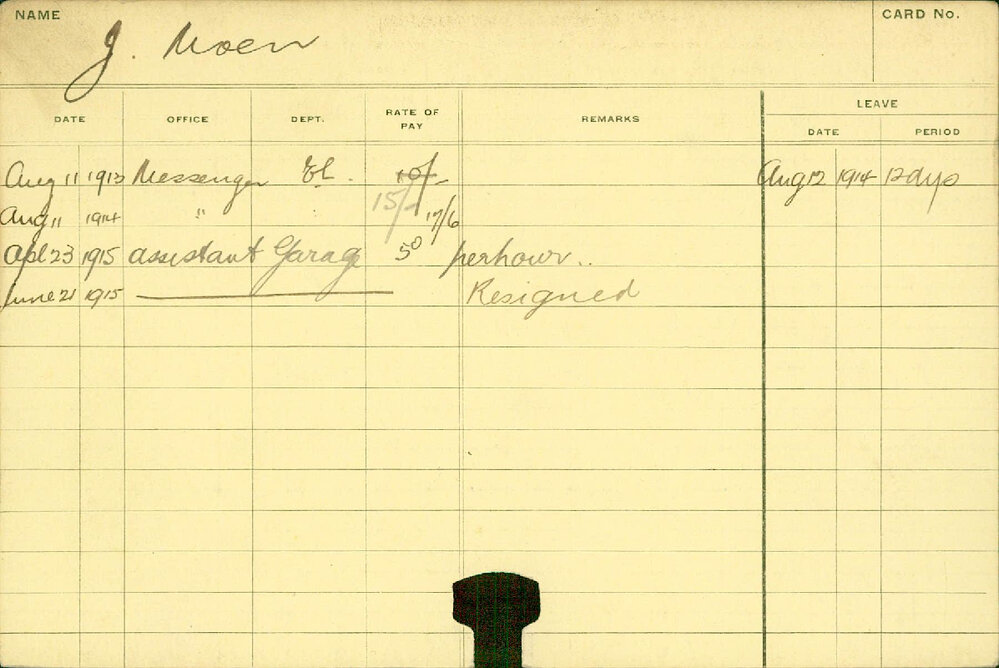 NAME
CARD No.
J. Moen
DATE OFFICE DEPT. RATE OF PAY REMARKS LEAVE
DATE PERIOD
Aug 11 1913 Messenger El. 10/- Aug 12 1914 12 dys
15/-
Aug 11 1914 " 17/6
Apl 23 1915 assistant Garage 50 per hour..
June 21 1915 Resigned